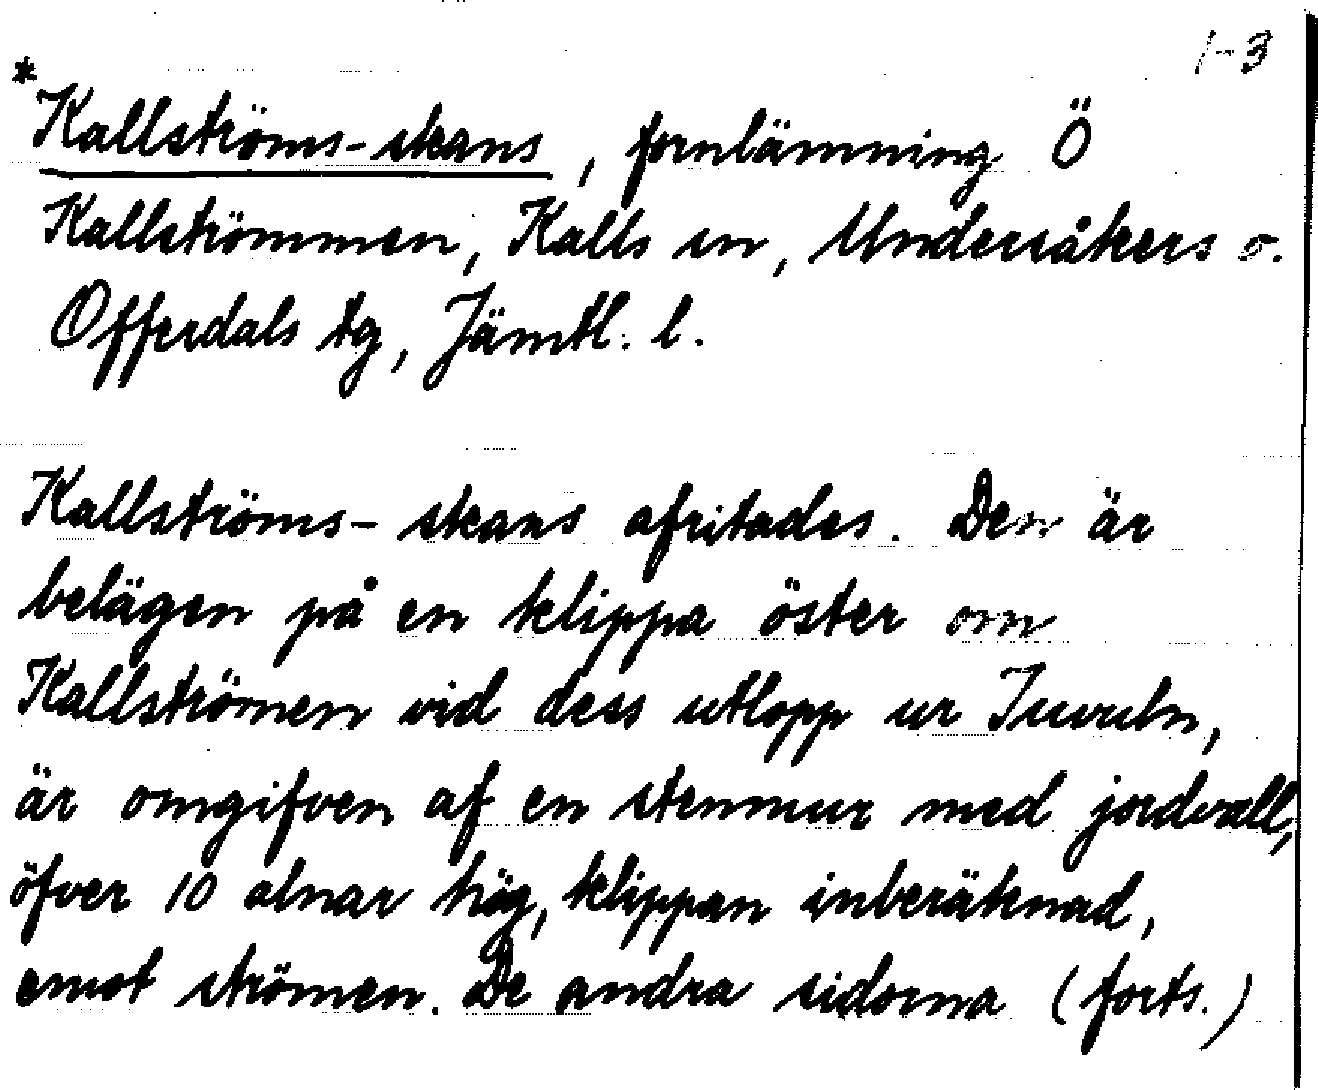 1-3
*
Kallströms-skans, fornlämning Ö
Kallströmmen, Kalls sn, Undersåkers o.
Offerdals tg, Jämtl. l.
Kallströms-skans afritades. Den är
belägen på en klippa öster om
Kallströmen vid dess utlopp ur Juvuln,
är omgifven af en stenmur med jordvall,
öfver 10 alnar hög, klippan inberäknad,
emot strömen. De andra sidorna (forts.)